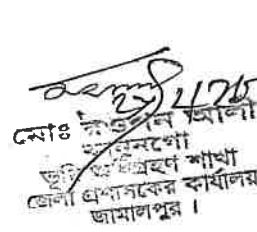 মোঃ রওশন আলী
কানুনগো
ভূমি অধিগ্রহণ শাখা
জেলা প্রশাসকের কার্যালয়
জামালপুর ।